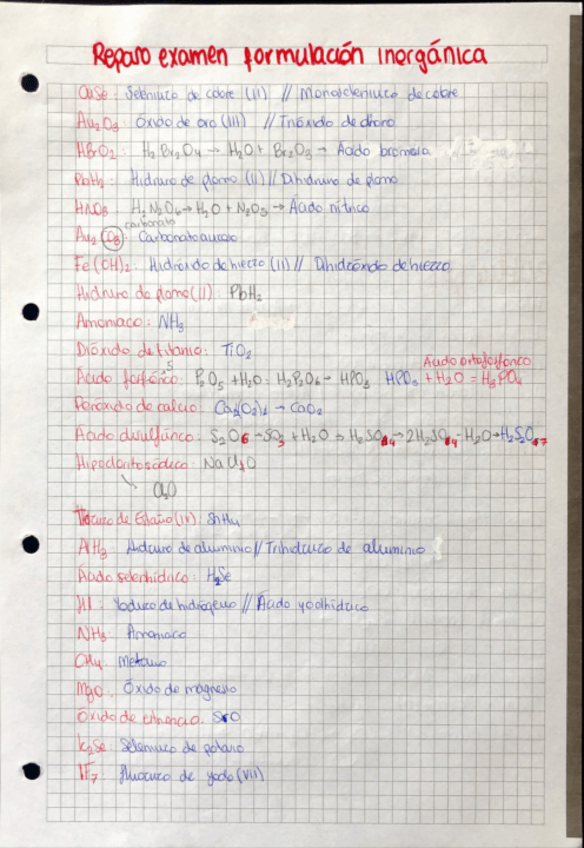 Repaso examen formulación inorgánica
CuSe: Seleniuro de cobre (II) // Monoseleniuro de cobre
Au₂O₃: Óxido de oro (III) // Trióxido de dioro
HBrO₂: H₂Br₂O₄ → H₂O + Br₂O₃ → Ácido bromoso
PbH₂: Hidruro de plomo (II) // Dihidruro de plomo
HNO₃ H₂N₂O₆ → H₂O + N₂O₅ → Ácido nítrico
carbonato
Au₂ (CO₃) Carbonato auroso
Fe(OH)₂: Hidróxido de hierro (II) // Dihidróxido de hierro
Hidruro de plomo (II): PbH₂
Amoniaco: NH₃
Dióxido de titanio: TiO₂
Ácido ortofosfórico
5
Ácido fosfórico: P₂O₅ + H₂O: H₂P₂O₆ → HPO₃ HPO₃ + H₂O = H₃PO₄
Peróxido de calcio: Ca₂(O₂)₂ → CaO₂
Ácido disulfúrico: S₂O6 → SO₃ + H₂O → H₂SO₄ → 2H₂SO₄ - H₂O → H₂S₂O₇
Hipoclorito sódico: NaClO
Cl₂O
Hidruro de Estaño (IV): SnH₄
AlH₃: Hidruro de aluminio // Trihidruro de aluminio
Ácido selenhídrico: H₂Se
HI: Yoduro de hidrógeno // Ácido yodhídrico
NH₃: Amoniaco
CH₄: Metano
MgO: Óxido de magnesio
Óxido de estroncio: SrO
K₂Se: Seleniuro de potasio
IF₇: fluoruro de yodo (VII)